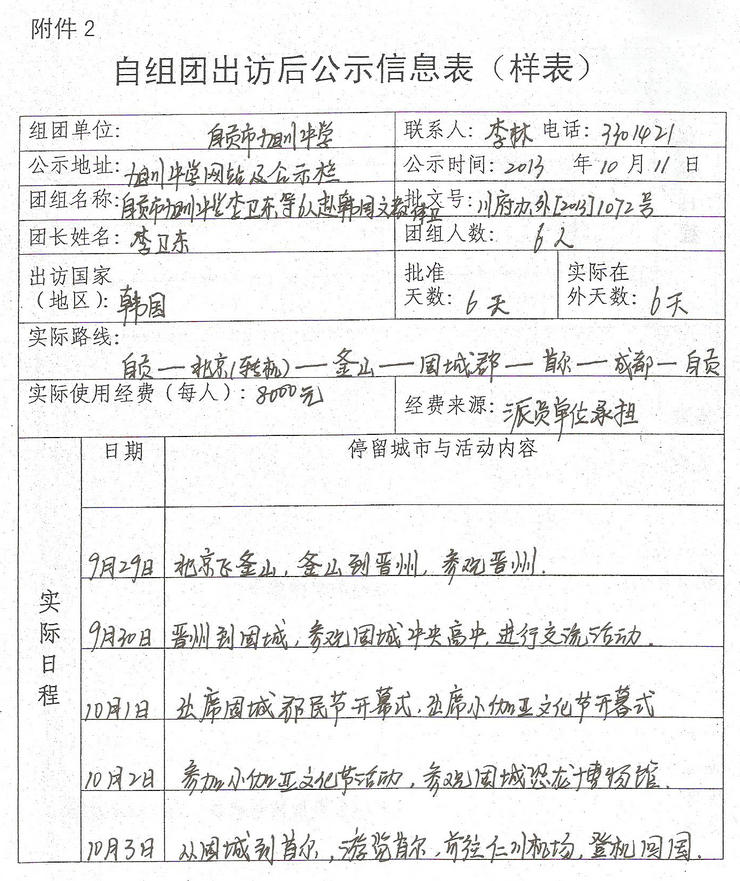 附件2
自组团出访后公示信息表（样表）
组团单位： 自贡市旭川中学 联系人：李林 电话：3301421
公示地址：旭川中学网站及公示栏 公示时间：2013 年10月11日
团组名称：自贡市旭川中学李卫东等6人赴韩国文 批文号：川府办外[2013]1072号
团长姓名：李卫东 团组人数： 6人
出访国家 批准 实际在
（地区）：韩国 天数：6天 外天数：6天
实际路线：
自贡—北京(转机)—釜山—固城郡—首尔—成都—自贡
实际使用经费（每人）：8000元 经费来源：派员单位承担
日期 停留城市与活动内容
实际日程
9月29日 北京飞釜山，釜山到晋州，参观晋州.
9月30日 晋州到固城，参观固城中央高中，进行交流活动.
10月1日 出席固城郡民节开幕式，出席小伽亚文化节开幕式
10月2日 参加小伽亚文化节活动，参观固城恐龙博物馆.
10月3日 从固城到首尔，游览首尔，前往仁川机场，登机回国.